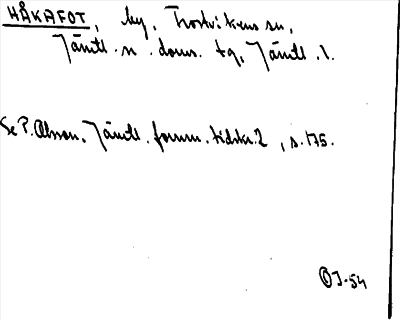 HÅKAFOT, by, Trostvikens sn,
Jämtl. n. doms. tg, Jämtl. l.
Se P. Olsson, Jämtl. fornm. tidskr. 2, s. 175.
OJ-54